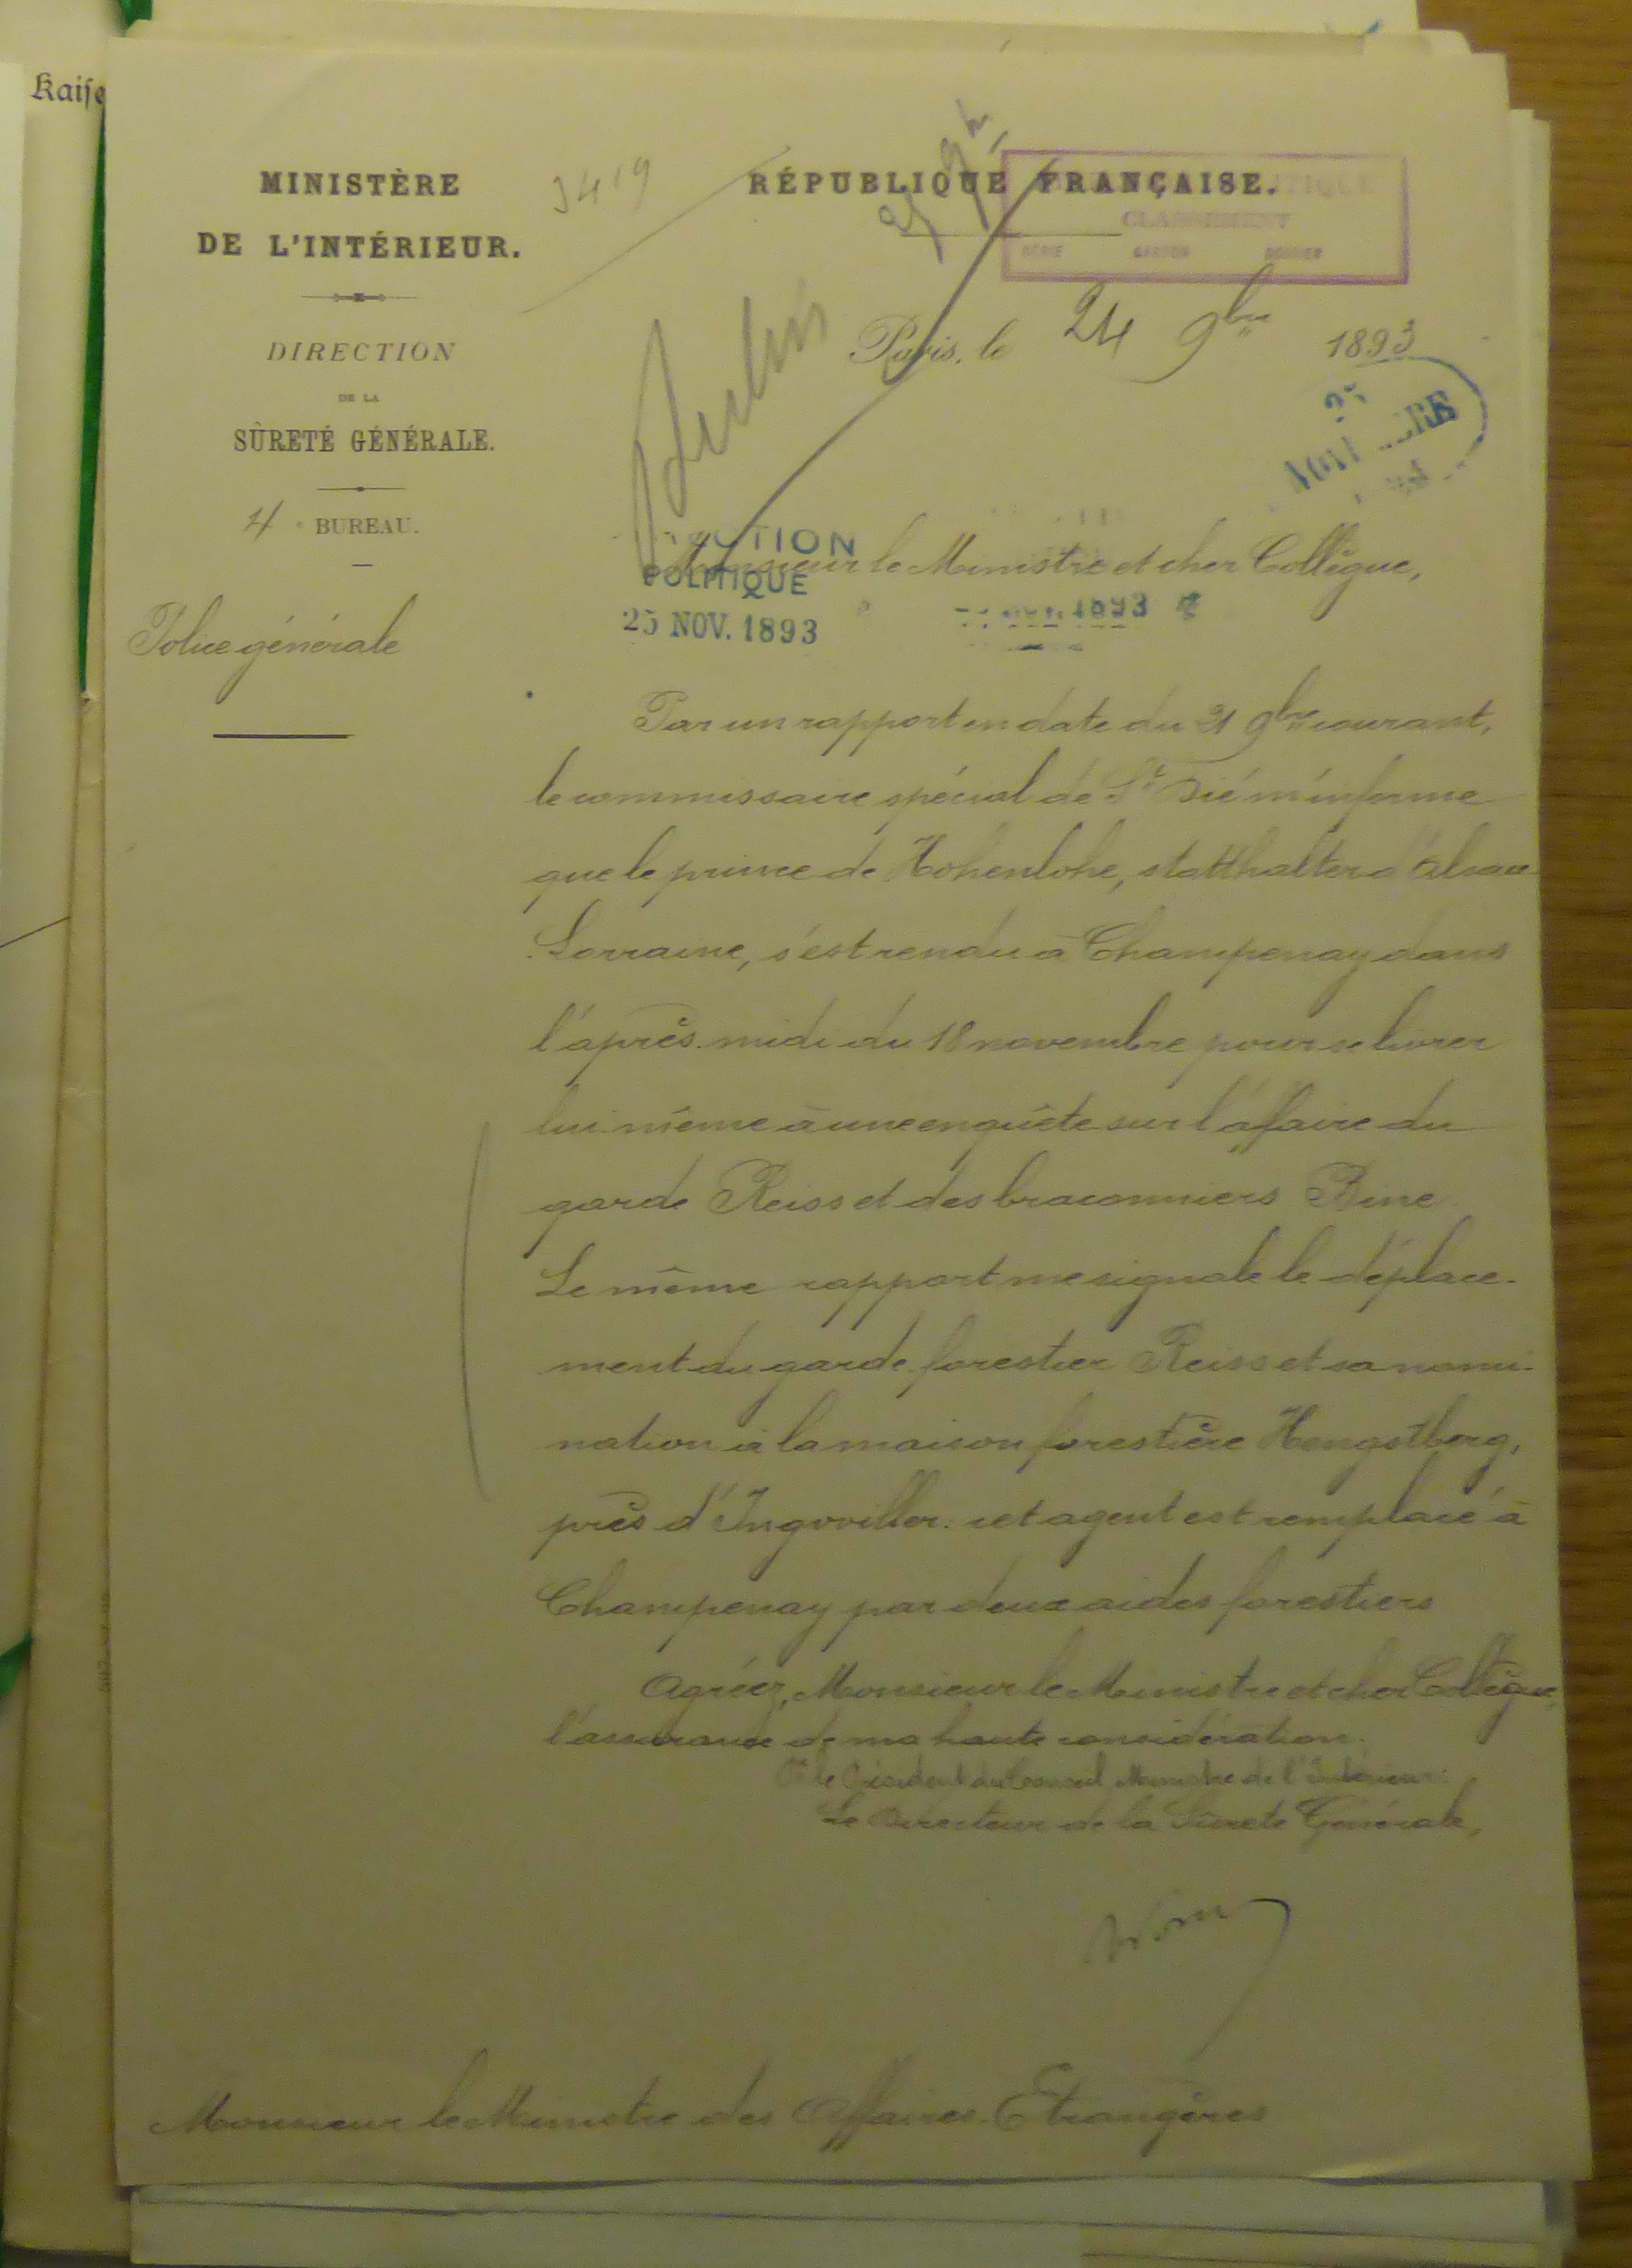 Kaise
MINISTÈRE
DE L'INTÉRIEUR.
DIRECTION
DE LA
SÛRETÉ GÉNÉRALE.
4 e BUREAU.
Police générale
3419
RÉPUBLIQUE FRANÇAISE.
CLASSEMENT
SÉRIE CARTON DOSSIER
Paris, le 24 9bre 1893
POLITIQUE
25 NOV. 1893
Monsieur le Ministre et cher Collègue,
Par un rapport en date du 21 9bre courant,
le commissaire spécial de St Dié m'informe
que le prince de Hohenlohe, statthalter d'Alsace-
Lorraine, s'est rendu à Champenay dans
l'après-midi du 18 novembre pour se livrer
lui-même à une enquête sur l'affaire du
garde Reiss et des braconniers Bine
Le même rapport me signale le déplace-
ment du garde forestier Reiss et sa nomi-
nation à la maison forestière Hengstberg,
près d'Ingwiller. cet agent est remplacé à
Champenay par deux aides forestiers
Agréez, Monsieur le Ministre et cher Collègue,
l'assurance de ma haute considération.
Pr le Président du Conseil, Ministre de l'Intérieur:
Le Directeur de la Sûreté Générale,
Monsieur le Ministre des Affaires Etrangères